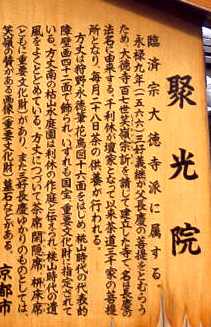 聚光院
臨済宗大徳寺派に属する。
永禄九年(一五六六)三好義継が父長慶の菩提をとむらう
ため、大徳寺百七世笑嶺宗訢を請じて建立した寺で、名は長慶の
法名に由来する。千利休が檀家となって以来茶道三千家の菩提
所となり、毎月二十八日茶の供養が行われる。
方丈は狩野永徳筆花鳥図十六面をはじめ、桃山時代の代表的
障壁画四十一面で飾られ、いずれも国宝、重要文化財に指定されて
いる。方丈南の枯山水庭園は利休の作庭と伝えられ、桃山時代の遺
風をよくとどめている。方丈につづいて茶席 閑隠席 枡床席
(ともに重要文化財)があり、また三好長慶ゆかりのものとしては
笑嶺の賛がある画像(重要文化財)墓石などがある。
京都市